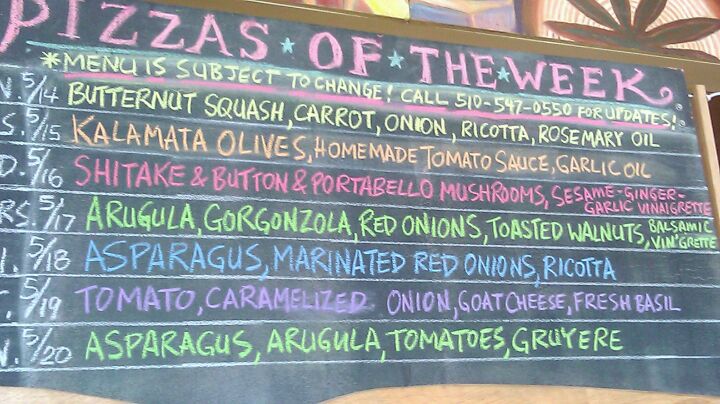 PIZZAS OF THE WEEK
*MENU IS SUBJECT TO CHANGE! CALL 510-547-0550 FOR UPDATES!
N. 5/14 BUTTERNUT SQUASH, CARROT, ONION, RICOTTA, ROSEMARY OIL
S. 5/15 KALAMATA OLIVES, HOMEMADE TOMATO SAUCE, GARLIC OIL
D. 5/16 SHITAKE & BUTTON & PORTABELLO MUSHROOMS, SESAME-GINGER-GARLIC VINAIGRETTE
RS. 5/17 ARUGULA, GORGONZOLA, RED ONIONS, TOASTED WALNUTS, BALSAMIC VIN'GRETTE
I. 5/18 ASPARAGUS, MARINATED RED ONIONS, RICOTTA
T. 5/19 TOMATO, CARAMELIZED ONION, GOAT CHEESE, FRESH BASIL
N. 5/20 ASPARAGUS, ARUGULA, TOMATOES, GRUYERE